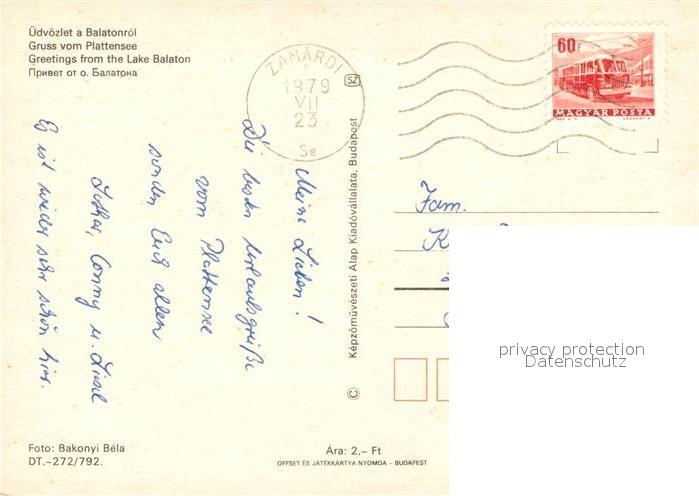 Üdvözlet a Balatonról
Gruss vom Plattensee
Greetings from the Lake Balaton
Привет от о. Балатона
ZAMÁRDI
1979
VII
23
Se
SZ
60f
MAGYAR POSTA
Meine Lieben!
Die besten Urlaubsgrüße
vom Plattensee
senden Euch allen
Lothar, Conny u. Liesel
Es ist wieder sehr schön hier.
© Képzőművészeti Alap Kiadóvállalata, Budapest
Fam.
K
privacy protection
Datenschutz
Foto: Bakonyi Béla
DT.–272/792.
Ára: 2,– Ft
OFFSET ÉS JÁTÉKKÁRTYA NYOMDA – BUDAPEST